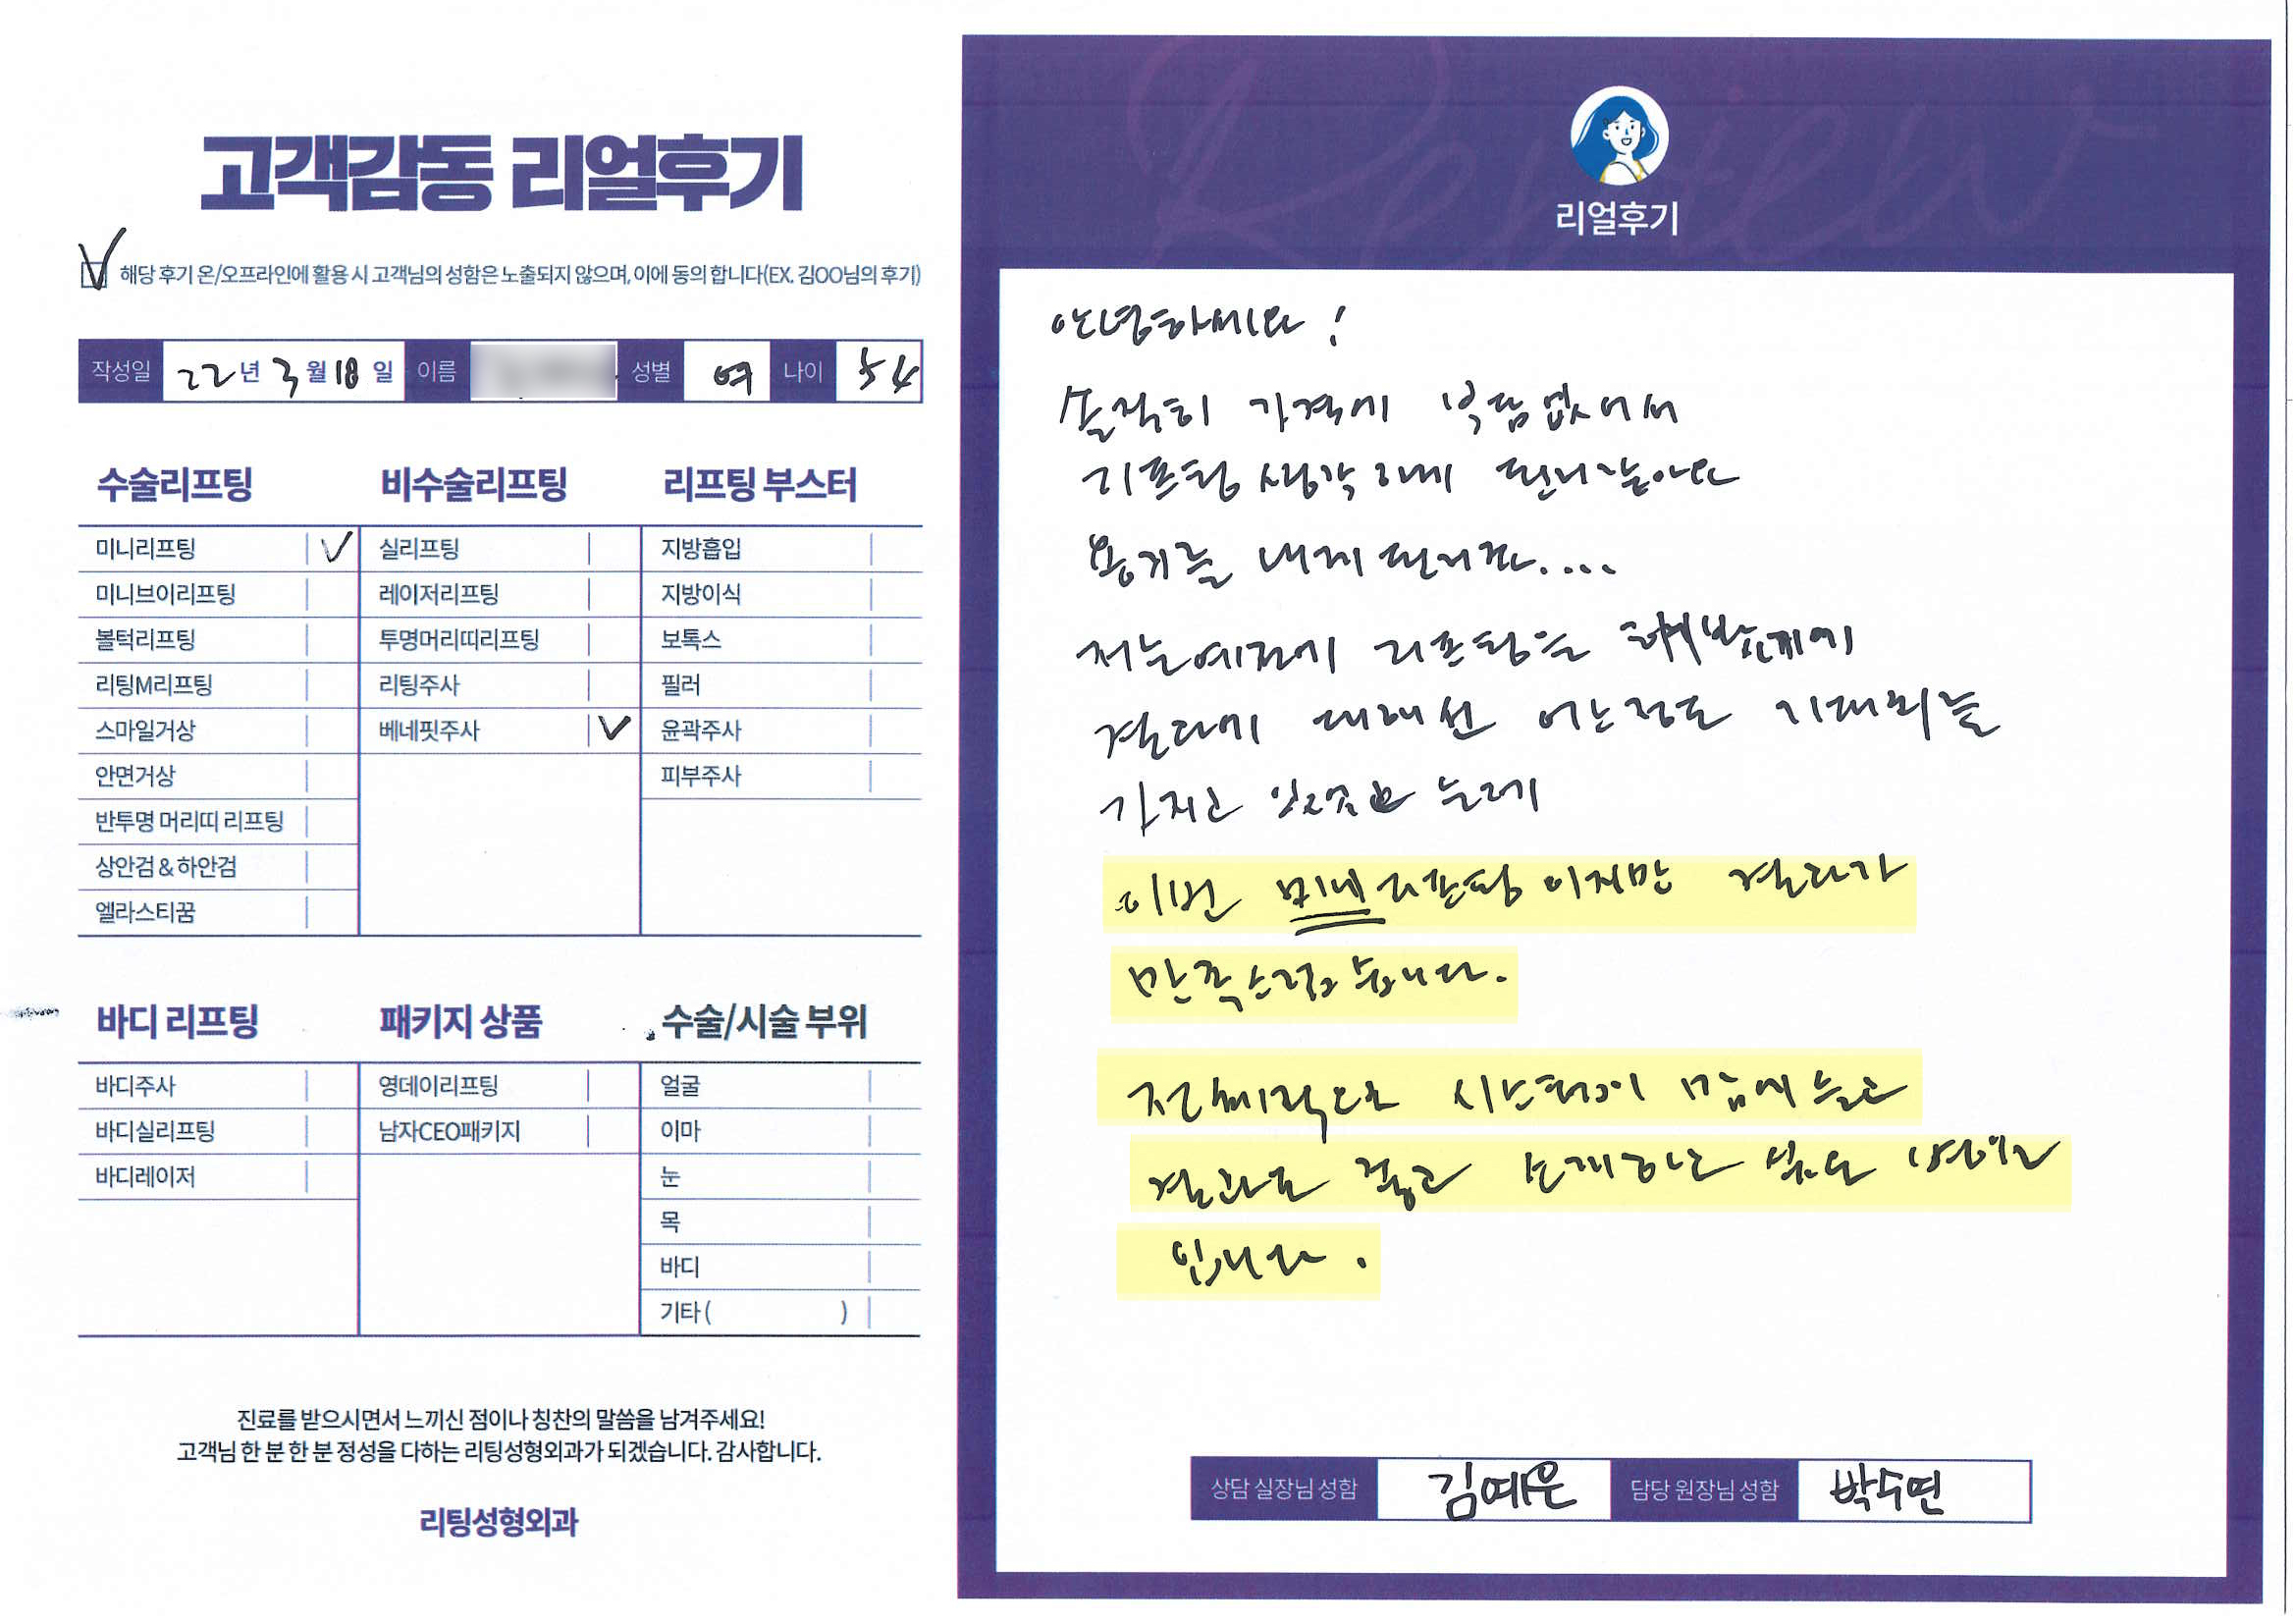 고객감동 리얼후기
해당 후기 온/오프라인에 활용 시 고객님의 성함은 노출되지 않으며, 이에 동의 합니다(EX. 김OO님의 후기)
작성일 22년 3월 18일 이름 성별 여 나이 54
수술리프팅
미니리프팅
미니브이리프팅
볼턱리프팅
리팅M리프팅
스마일거상
안면거상
반투명 머리띠 리프팅
상안검 & 하안검
엘라스티꿈
비수술리프팅
실리프팅
레이저리프팅
투명머리띠리프팅
리팅주사
베네핏주사
리프팅 부스터
지방흡입
지방이식
보톡스
필러
윤곽주사
피부주사
바디 리프팅
바디주사
바디실리프팅
바디레이저
패키지 상품
영데이리프팅
남자CEO패키지
수술/시술 부위
얼굴
이마
눈
목
바디
기타 ( )
진료를 받으시면서 느끼신 점이나 칭찬의 말씀을 남겨주세요!
고객님 한 분 한 분 정성을 다하는 리팅성형외과가 되겠습니다. 감사합니다.
리팅성형외과
Review
리얼후기
안녕하세요!
솔직히 가격에 부담없어서
리프팅 생각하게 된거같아요
용기를 내게 된거죠....
저는 예전에 리프팅을 해봤기에
결과에 대해선 어느정도 기대치를
가지고 있었는데
이번 미니리프팅이지만 결과가
만족스럽습니다.
전체적으로 시스템이 맘에들고
결과도 좋고 소개하고 싶은 병원
입니다.
상담 실장님 성함 김예은 담당 원장님 성함 박수연